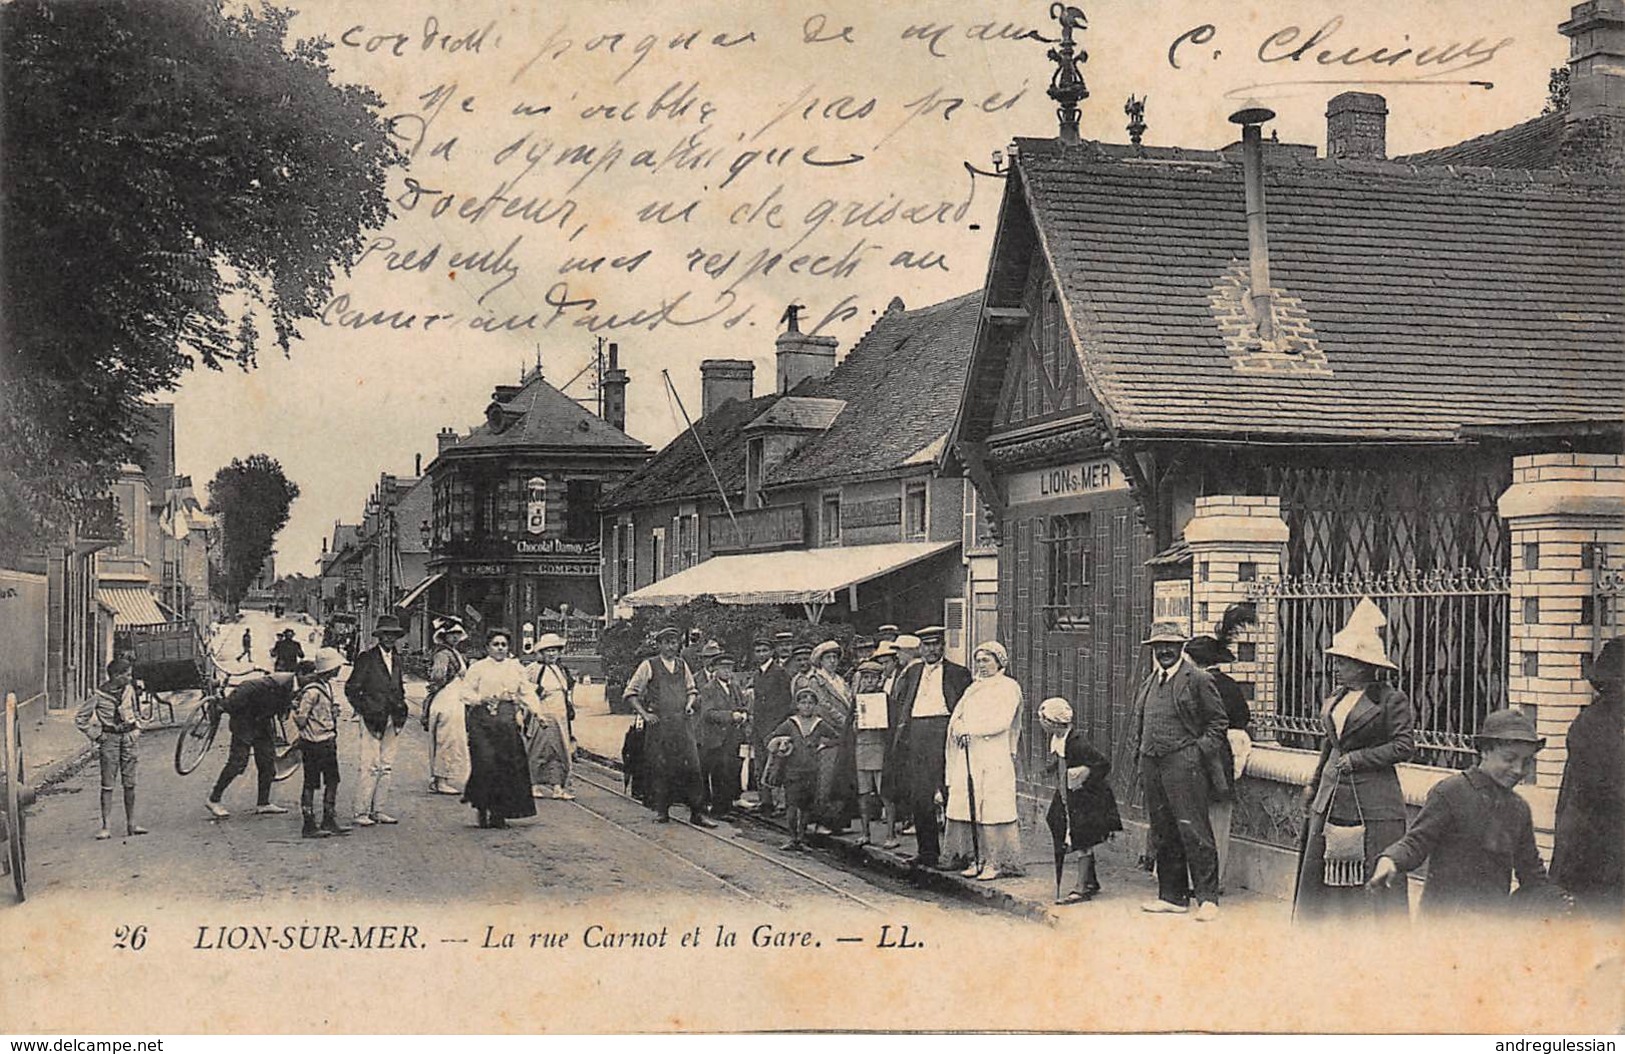 cordiale poignée de main
Ne m'oublie pas près
du sympathique
Docteur, ni de grisard
Presentez mes respects au
Commandant s. p.
C.
LION-S-MER
KUB
Chocolat Damoy
COMESTI
26 LION-SUR-MER. — La rue Carnot et la Gare. — LL.
www.delcampe.net
andregulessian